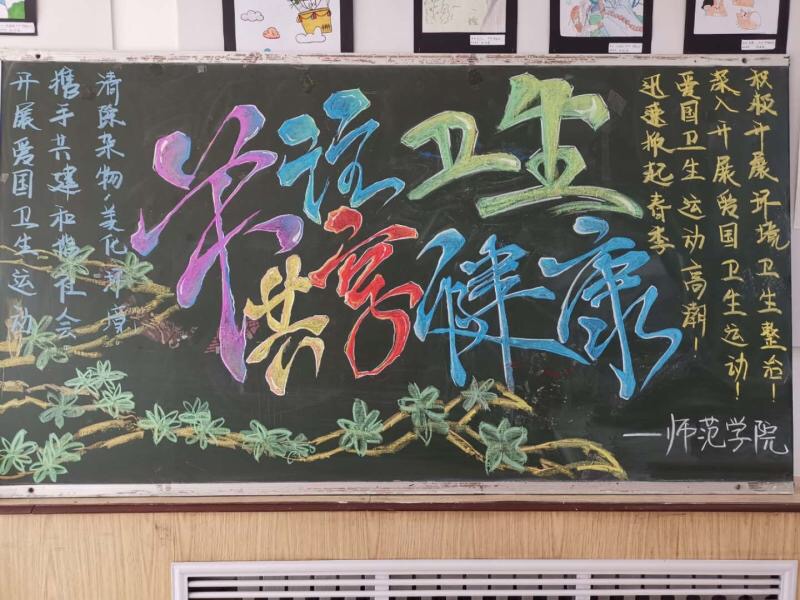 关注卫生
共享健康
开展爱国卫生运动
携手共建和谐社会
清除杂物,美化环境
迅速掀起春季
爱国卫生运动高潮！
深入开展爱国卫生运动！
积极开展环境卫生整治！
—师范学院